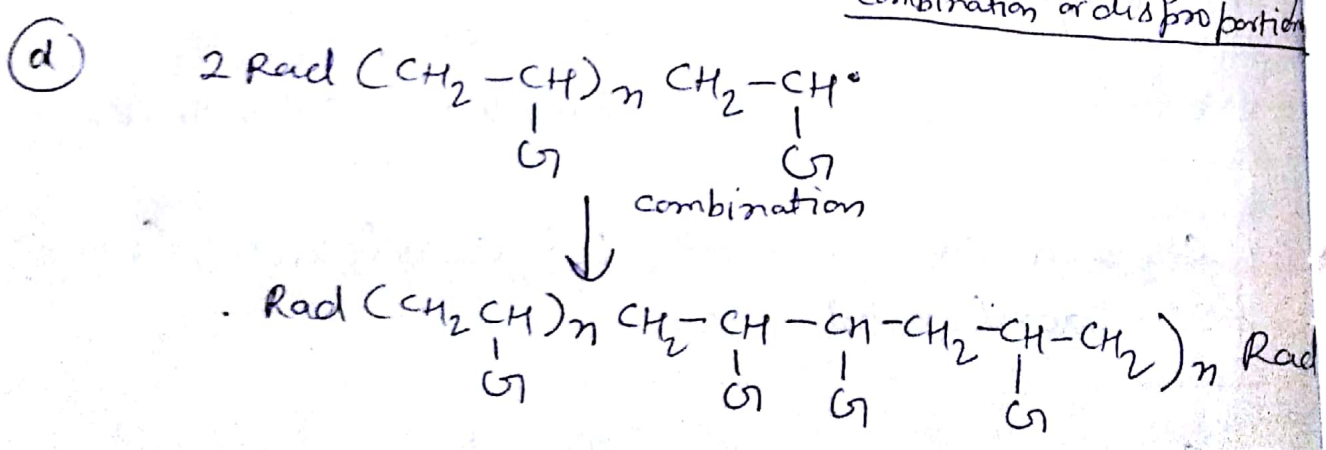 combination or disproportion
d 2 Rad (CH₂-CH)n CH₂-CH•
G G
combination
. Rad (CH₂CH)n CH₂-CH-CH-CH₂-CH-CH₂)n Rad
G G G G